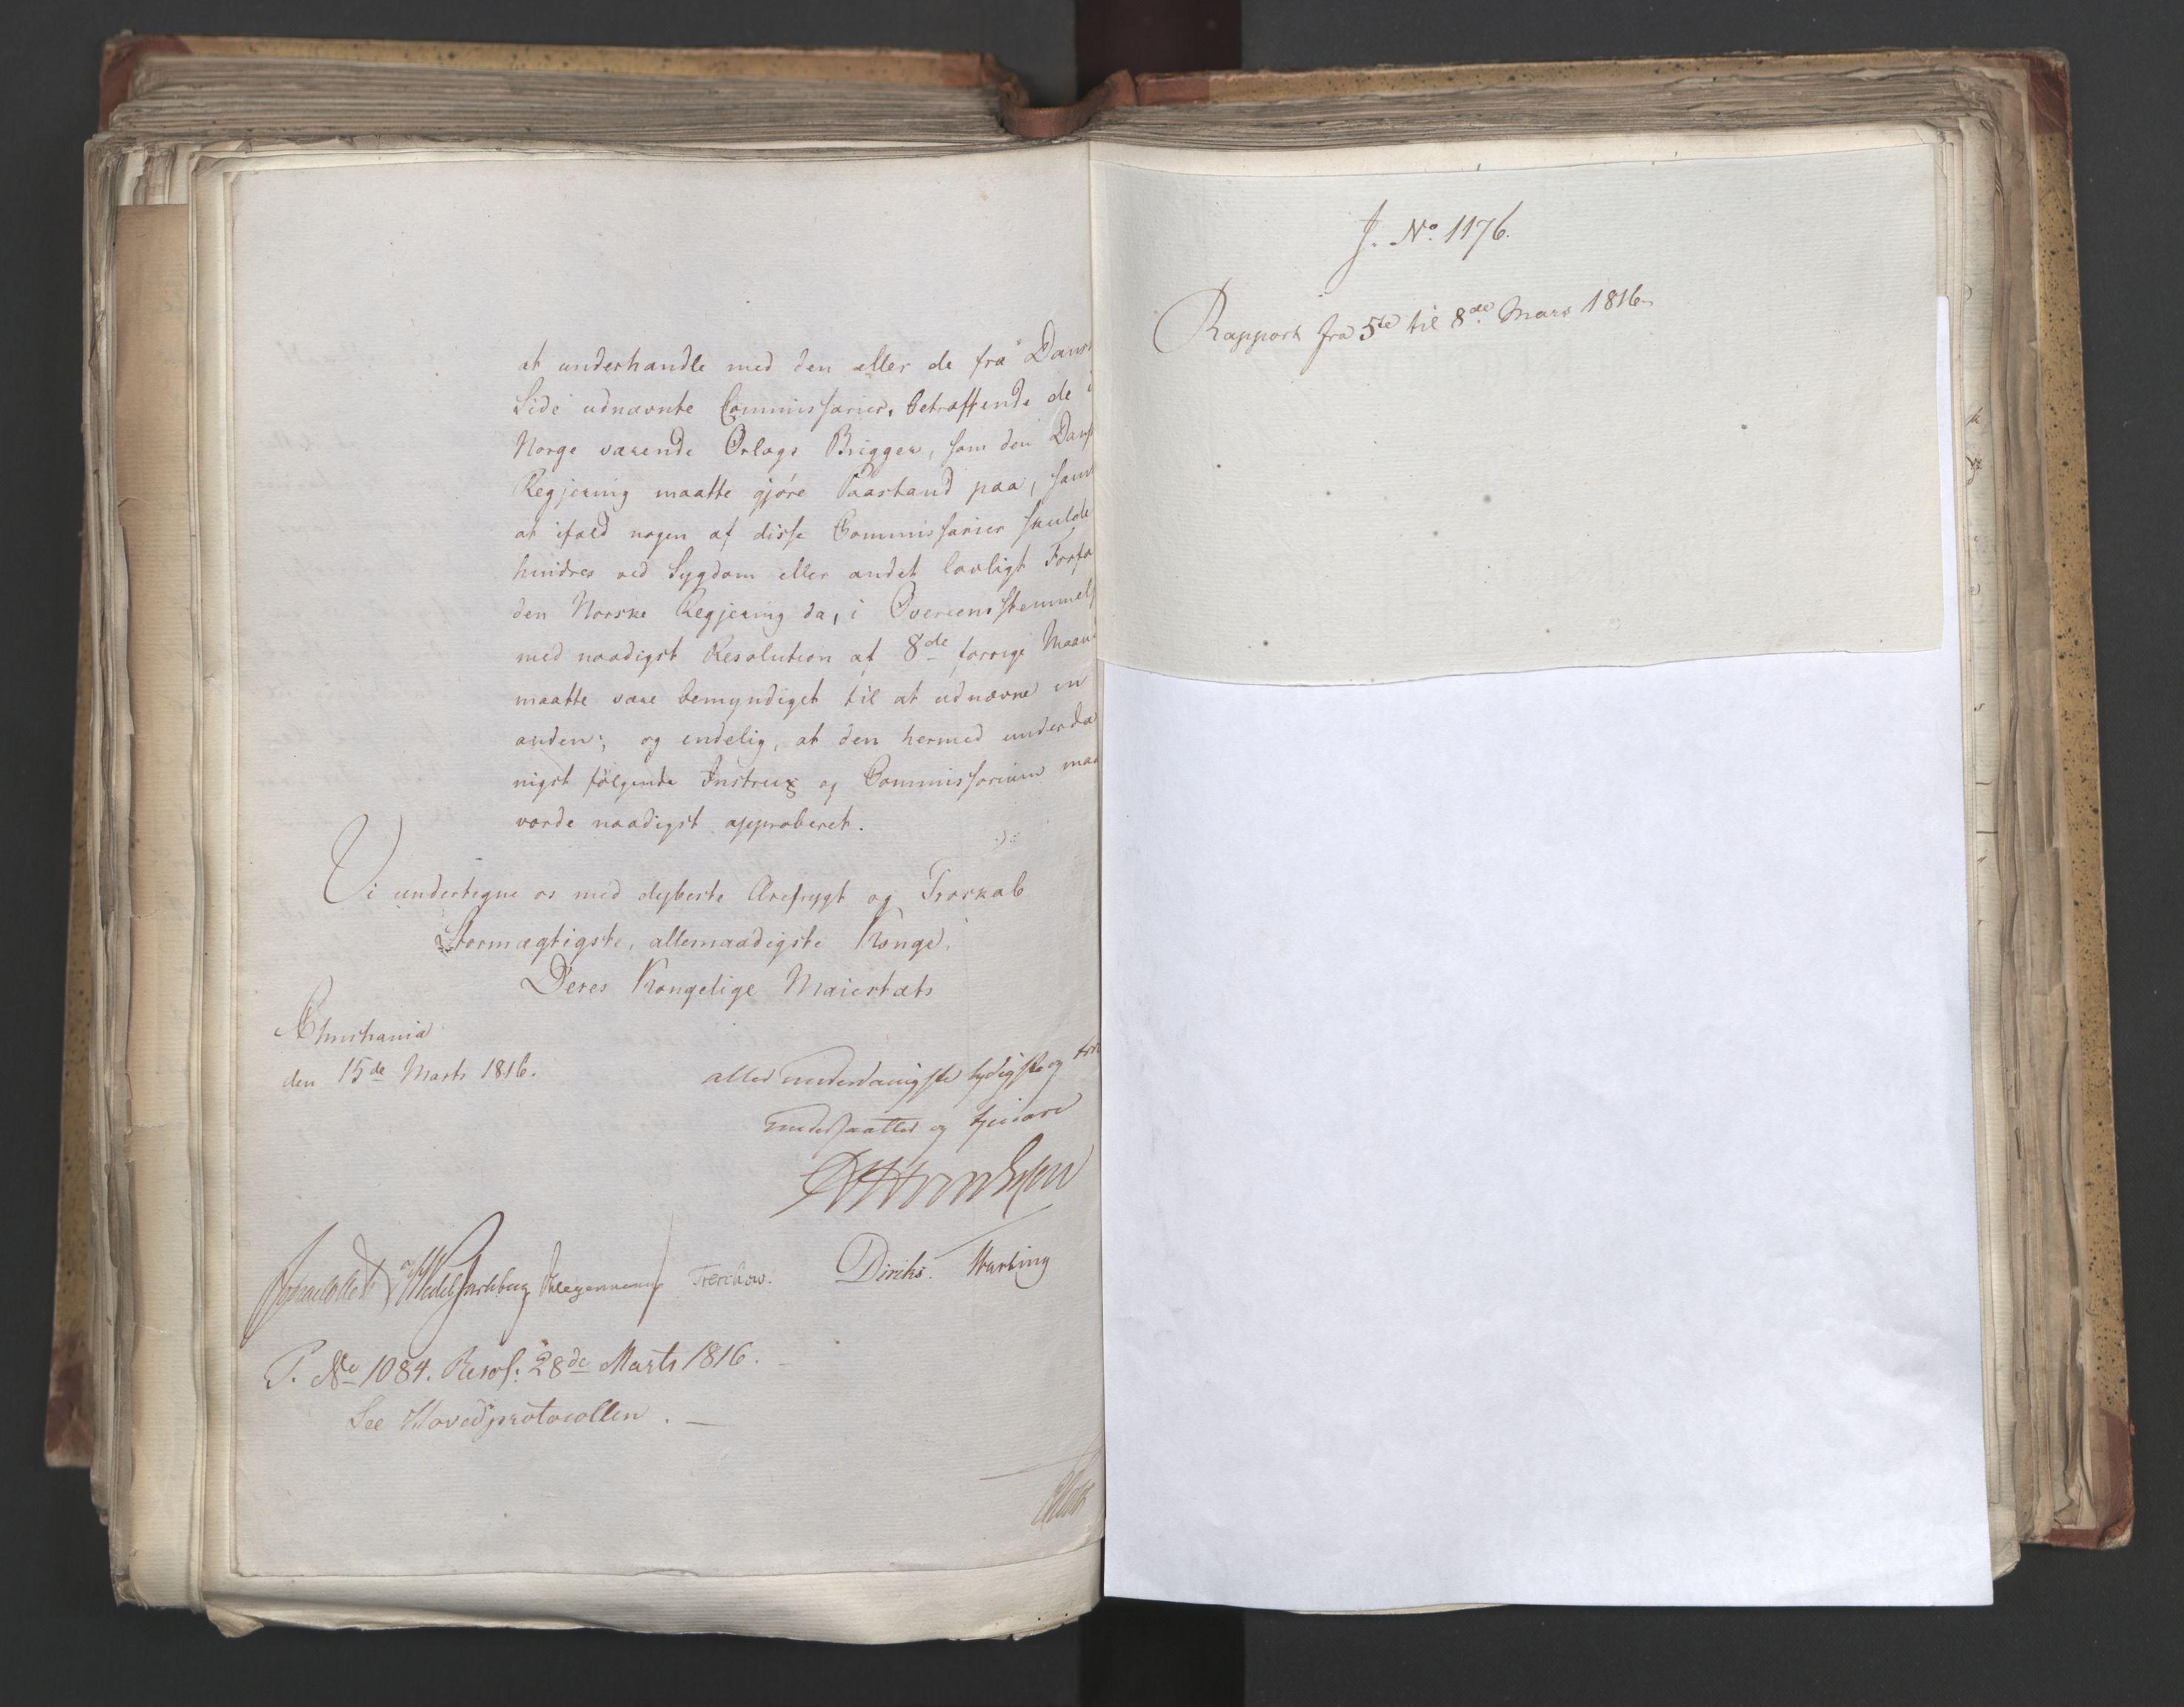 at underhandle med den eller de fra Dansk
Side udnævnte Commissarier, betræffende de i
Norge værende Orlogs Brigger, som den Dansk
Regjering maatte gjöre Paastand paa, samt
at ifald nogen af disse Commissarier skulde
hindres ved Sygdom eller andet lovligt Forfa
den Norske Regjering da, i Overeensstemmels
med naadigst Resolution af 8de forrige Maan
maatte være bemyndiget til at udnævne en
anden; og endelig, at den hermed underda
nigst fölgende Instrux og Commissorium maa
vorde naadigst approberet.
Vi undertegne os med dybeste Ærefrygt og Troskab
Stormægtigste, allernaadigste Konge,
Deres Kongelige Maiestæts
Christiania
den 15de Marts 1816.
allerunderdanigste lydigste og tro
undersaatter og tjenere
Jonas Collett Wedel Jarlsberg Treschow. Diriks.
P. No 1084. Resol: 28de Marts 1816.
See Hovedprotocollen.
J. No. 1176.
Rapport fra 5te til 8de Mars 1816